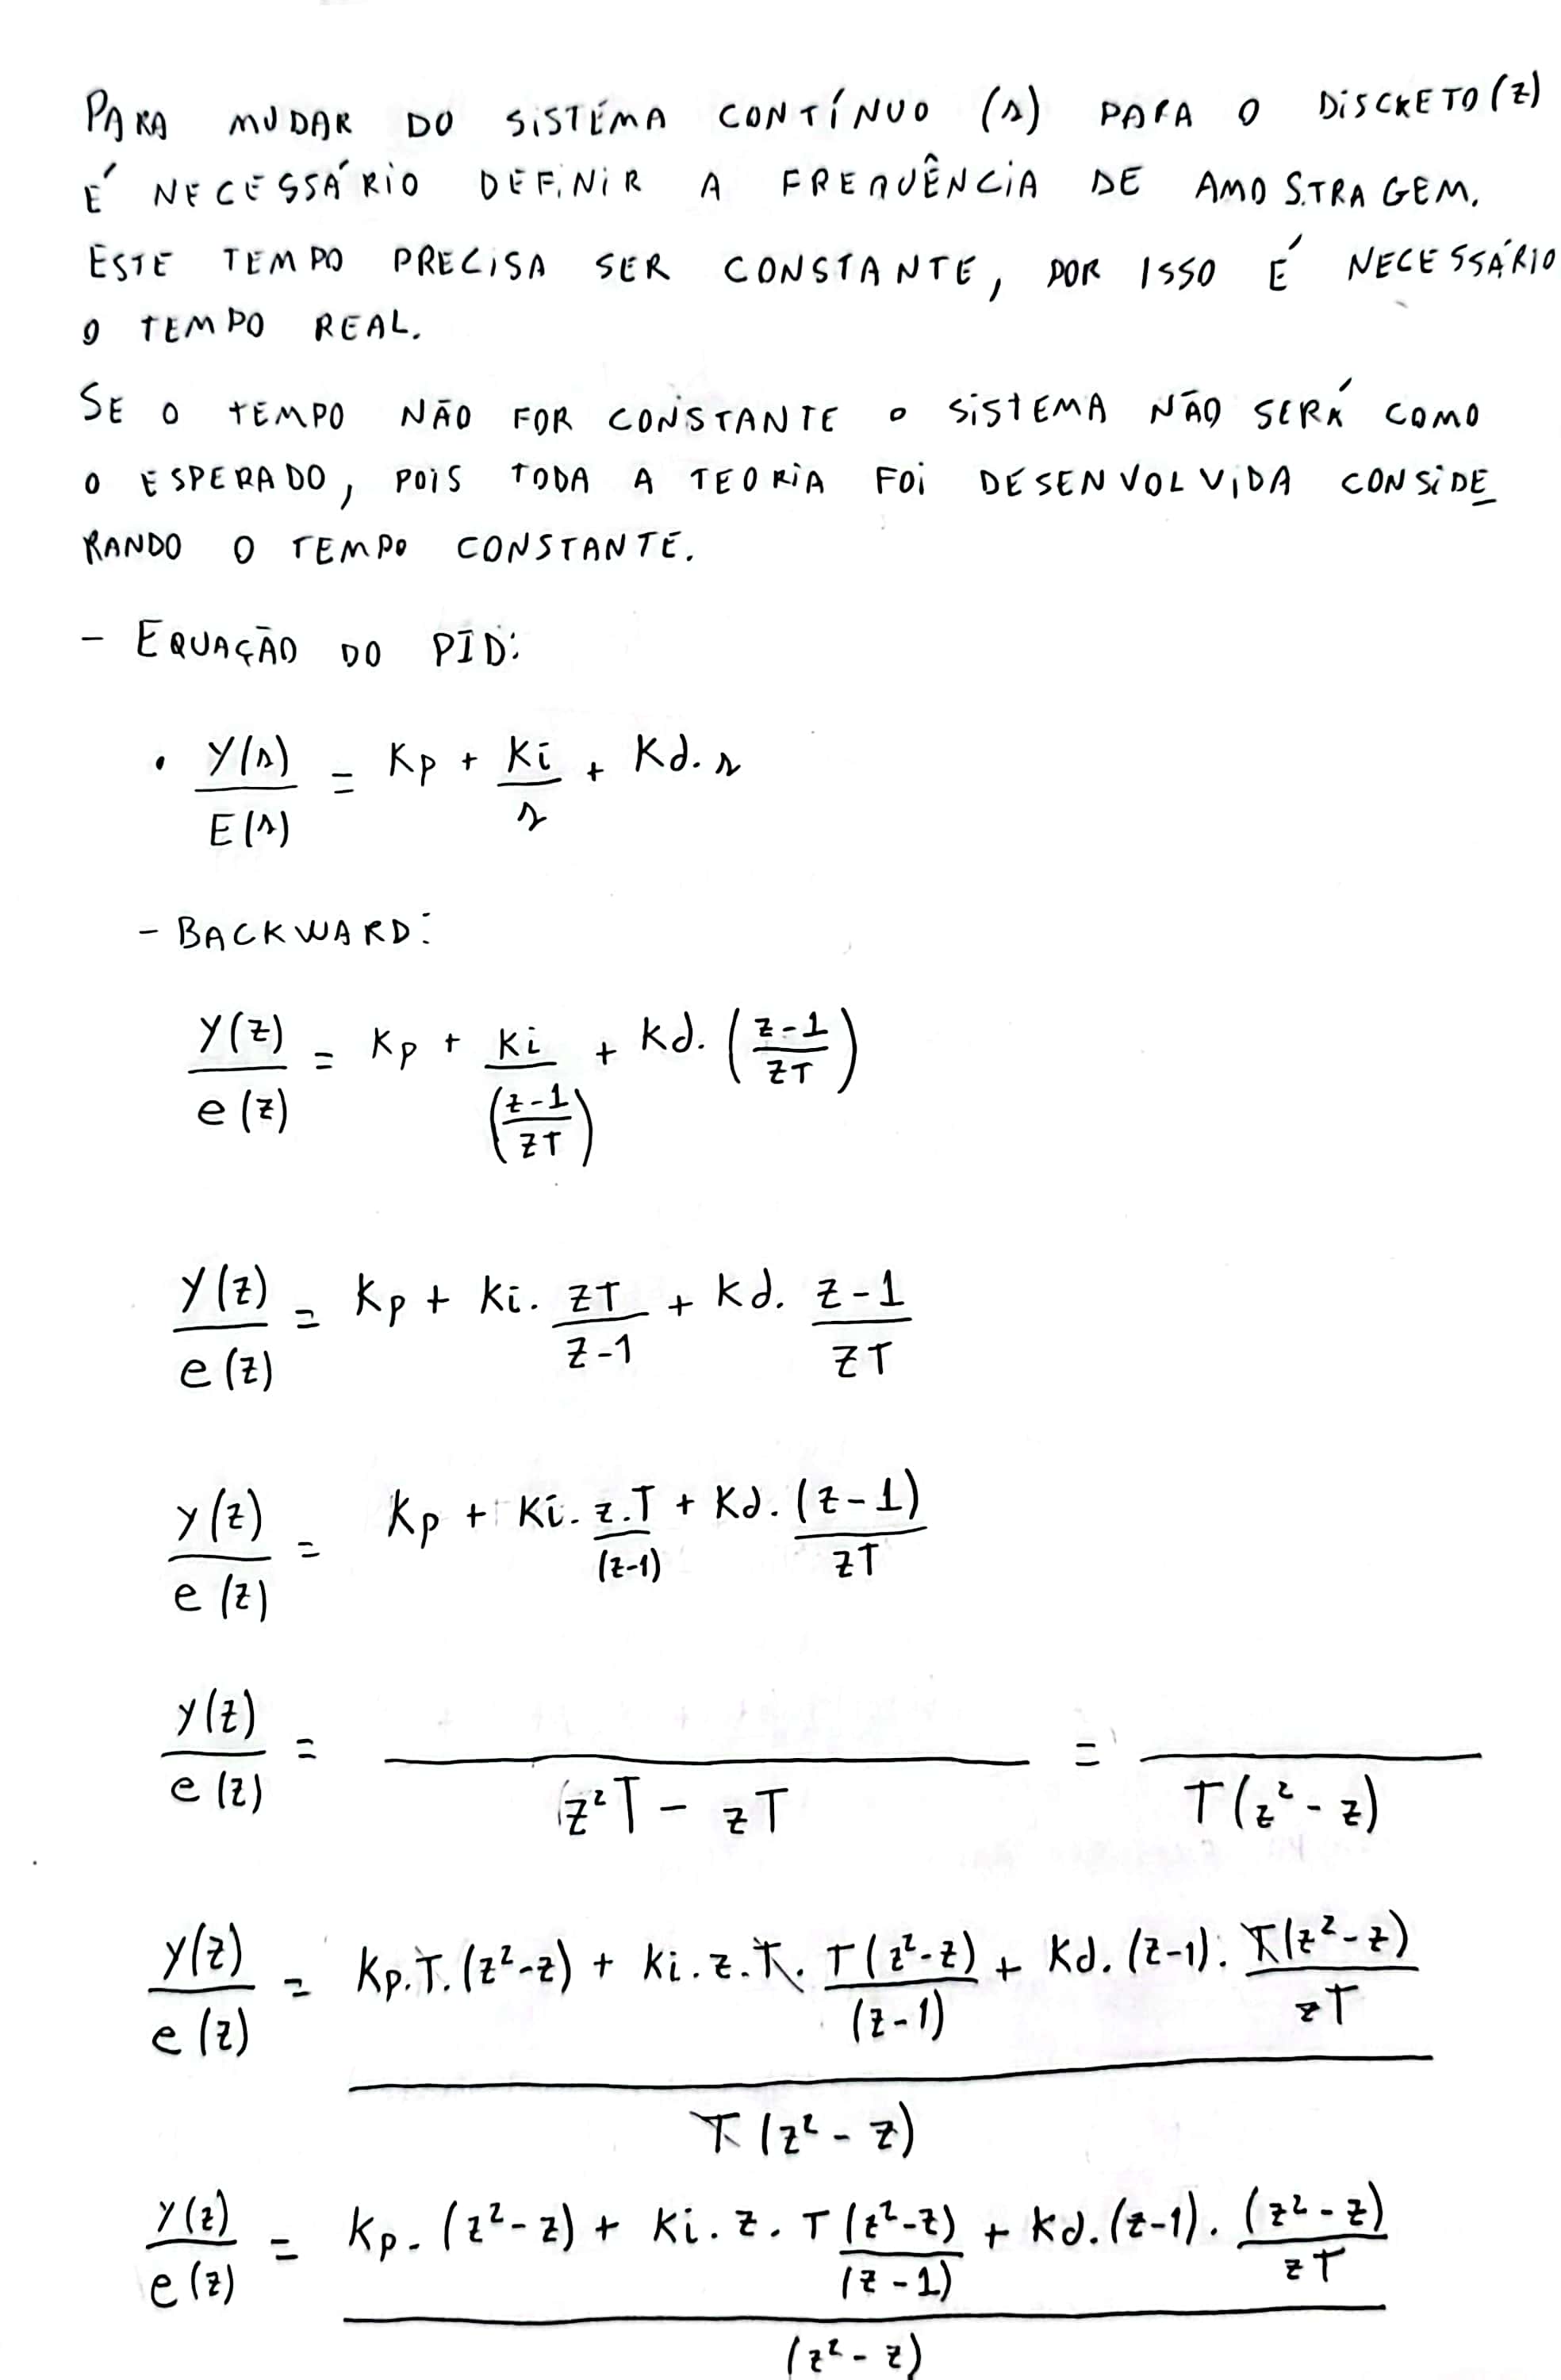 PARA MUDAR DO SISTÉMA CONTÍNUO (s) PARA O DISCRETO (z)
É NECESSÁRIO DEFINIR A FREQUÊNCIA DE AMOSTRAGEM.
ESTE TEMPO PRECISA SER CONSTANTE, POR ISSO É NECESSÁRIO
O TEMPO REAL.
SE O TEMPO NÃO FOR CONSTANTE O SISTEMA NÃO SERÁ COMO
O ESPERADO, POIS TODA A TEORIA FOI DESENVOLVIDA CONSIDE
RANDO O TEMPO CONSTANTE.
- EQUAÇÃO DO PID:
• Y(s)/E(s) = Kp + Ki/s + Kd.s
- BACKWARD:
Y(z)/e(z) = Kp + Ki/((z-1)/(zT)) + Kd.((z-1)/(zT))
Y(z)/e(z) = Kp + Ki. zT/(z-1) + Kd. (z-1)/(zT)
Y(z)/e(z) = Kp + Ki. z.T/(z-1) + Kd. (z-1)/(zT)
Y(z)/e(z) = ——/(z²T - zT) = ——/(T(z² - z))
Y(z)/e(z) = (Kp.T.(z²-z) + Ki.z.T. T(z²-z)/(z-1) + Kd.(z-1). T(z²-z)/(zT)) / (T(z² - z))
Y(z)/e(z) = (Kp.(z²-z) + Ki.z.T(z²-z)/(z-1) + Kd.(z-1).(z²-z)/(zT)) / (z² - z)